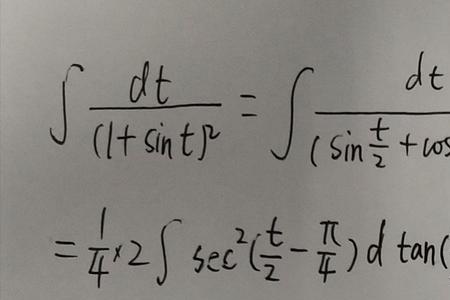 ∫ dt/(1+sin t)² = ∫ dt/(sin t/2 + cos
= 1/4 × 2 ∫ sec²(t/2 − π/4) d tan(